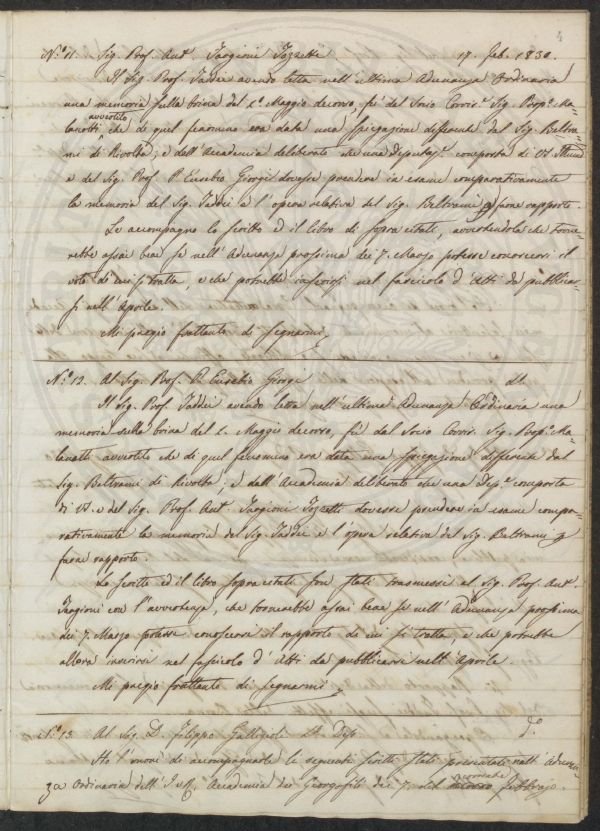 4
N.° 11. Sig. Prof. Ant. Targioni Tozzetti 17. Feb. 1830.
Il Sig. Prof. Taddei avendo letta nell'ultima Adunanza Ordinaria
una memoria sulla brina del 1.° Maggio decorso, fu dal Socio Corris.e Sig. Prop.o Ma=
lanotti avvertito che di quel fenomeno era data una spiegazione differente dal Sig. Beltra=
mi di Rivolta; e dall'Accademia deliberato che una deputaz.e composta di VS.
e del Sig. Prof. P. Eusebio Giorgi dovesse prendere in esame comparativamente
la memoria del Sig. Taddei e l'opera relativa del Sig. Beltrami p farne rapporto.
Le accompagno lo scritto ed il libro di sopra citati, avvertendola che torne=
rebbe assai bene se nell'Adunanza prossima dei 7. Marzo potesse conoscersi il
voto di cui si tratta, e che potrebbe inserirsi nel fascicolo d'Atti da pubblicar=
si nell'Aprile.
Mi pregio frattanto di segnarmi
N.° 12. Al Sig. Prof. P. Eusebio Giorgi dt.
Il Sig. Prof. Taddei avendo letta nell'ultima Adunanza Ordinaria una
memoria sulla brina del 1. Maggio decorso, fu dal Socio Corris. Sig. Prop.o Ma=
lanotti avvertito che di quel fenomeno era data una spiegazione differente dal
Sig. Beltrami di Rivolta, e dall'Accademia deliberato che una Dep.e composta
di VS. e del Sig. Prof. Ant. Targioni Tozzetti dovesse prendere in esame compa=
rativamente la memoria del Sig. Taddei e l'opera relativa del Sig. Beltrami p
farne rapporto.
Lo scritto ed il libro sopra citati son stati trasmessi al Sig. Prof. Ant.
Targioni con l'avvertenza, che tornerebbe assai bene se nell'Adunanza prossima
dei 7. Marzo potesse conoscersi il rapporto di cui si tratta, e che potrebbe
allora inserirsi nel fascicolo d'Atti da pubblicarsi nell'Aprile.
Mi pregio frattanto di segnarmi
N.° 13. Al Sig. D. Filippo Gallizioli d.°
Ho l'onore di accompagnarle le seguenti scritti stati presentati nell'Adunan=
za Ordinaria dell'I. e R. Accademia dei Georgofili dei 7. del corrente Febbrajo.